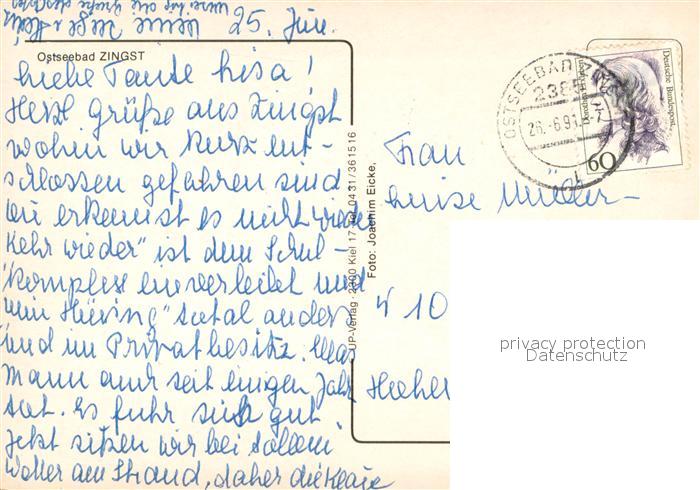 25. Juni
Ostseebad ZINGST
Liebe Tante Lisa!
Herzl Grüße aus Zingst
wohin wir kurz ent-
schlossen gefahren sind
Du erkennst es nicht wieder
Kehr wieder" ist dem Schul-
komplex einverleibt und
"mein Hüsing" total anders
und im Privatbesitz. Was
Mann auch seit einigen Jahr
hat. Es fuhr sich gut
Jetzt sitzen wir bei tollem
Wetter am Strand, daher die Klaue
UP-Verlag · 2300 Kiel 17 · Tel. 0431/361516
Foto: Joachim Eicke,
OSTSEEBAD ZINGST
2385
26.-6.91
Deutsche Bundespost
60
Frau
Luise Müller-
W 10
privacy protection
Datenschutz